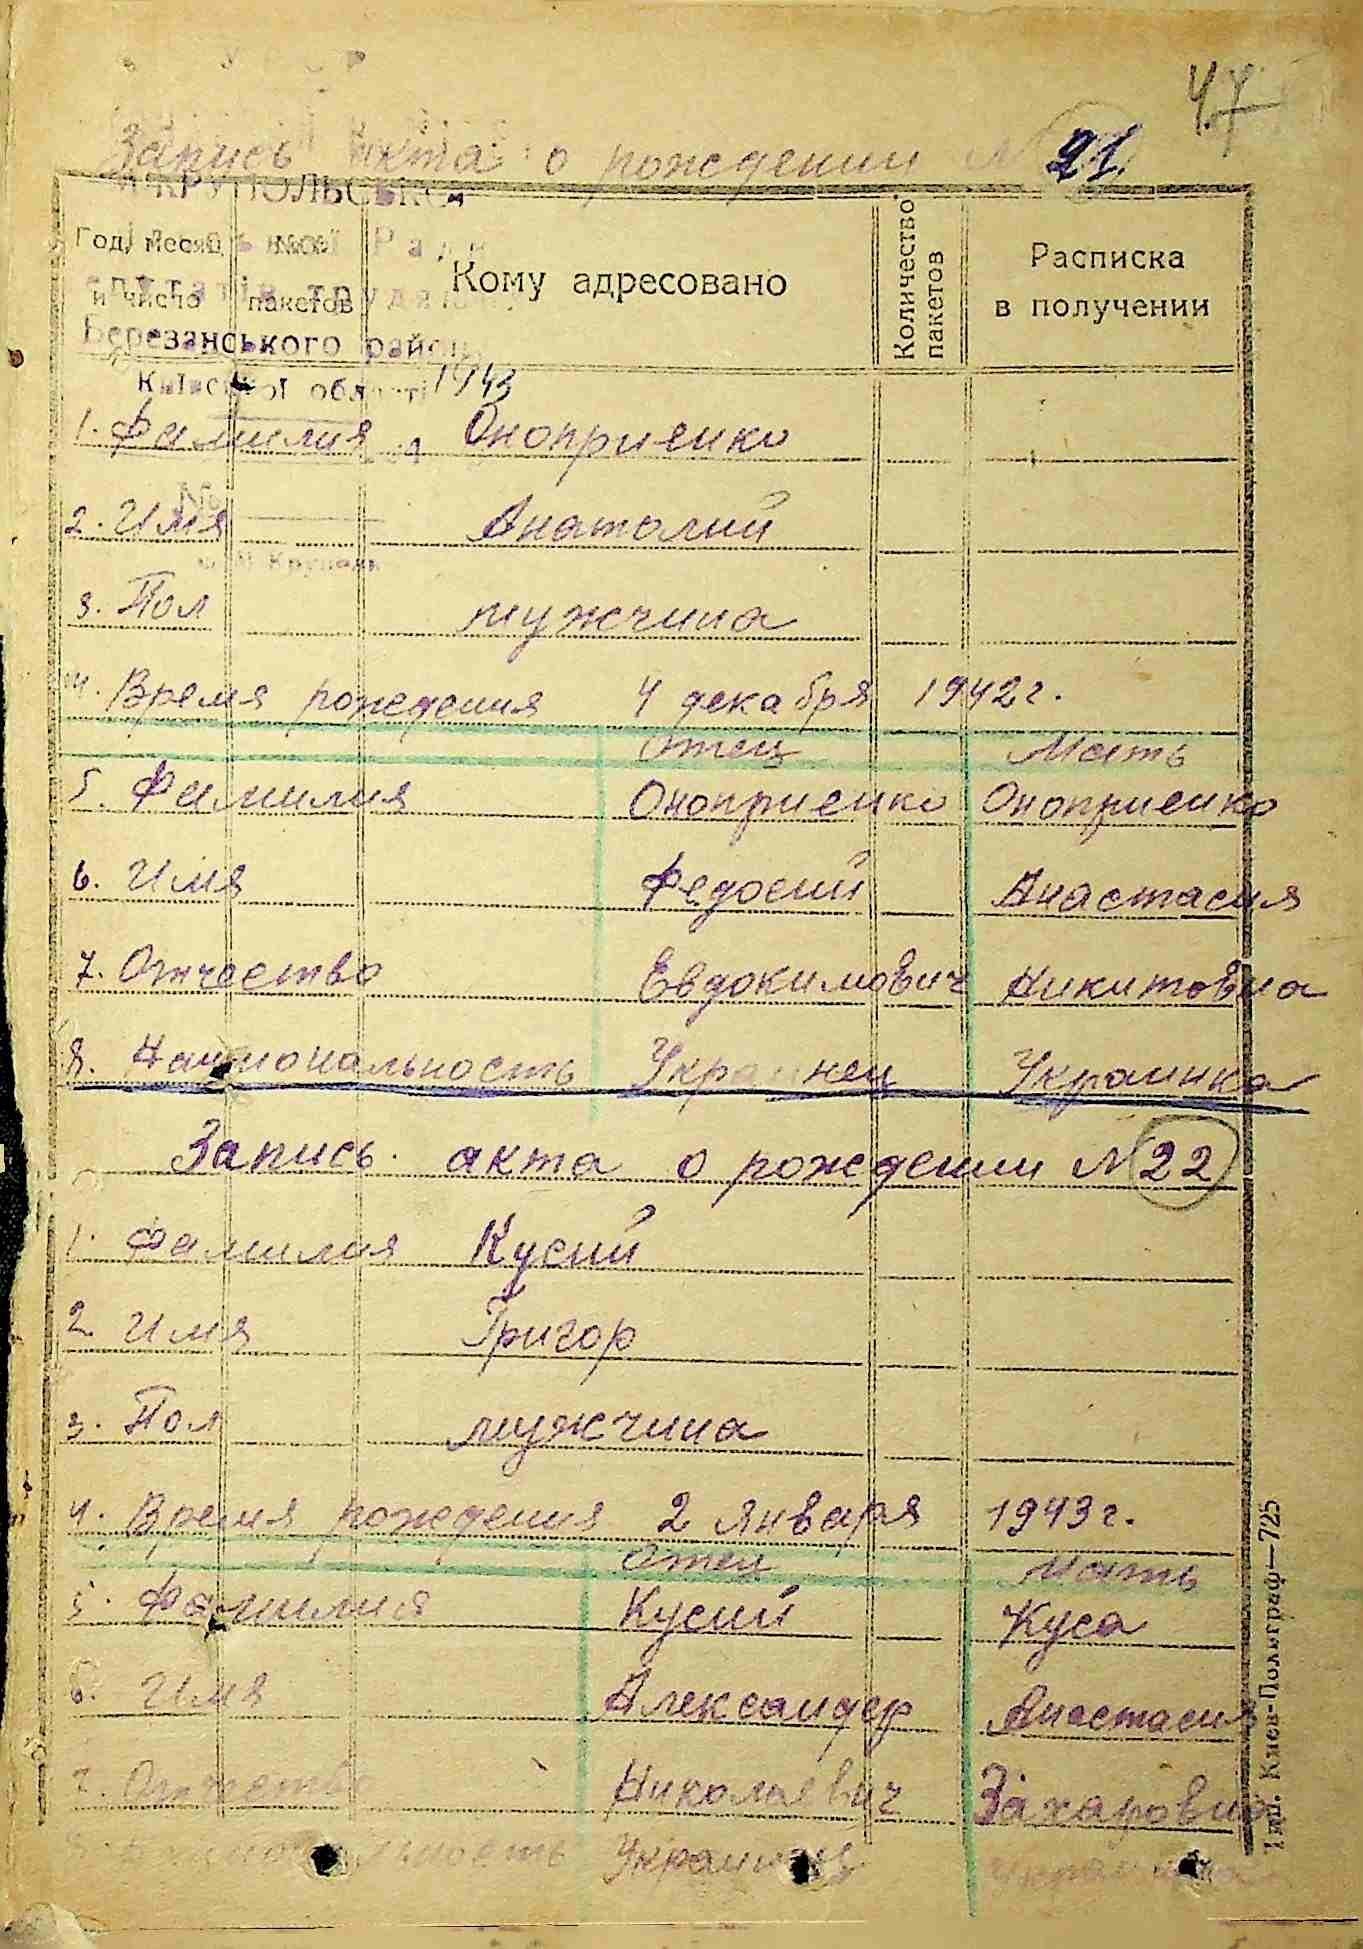 47
Запись акта о рождении № 21.
КРУПОЛЬСЬКО
Год, месяц и число
пакетов
Кому адресовано
Количество пакетов
Расписка в получении
Березанського району
Київської області
1943
1. Фамилия Оноприенко
2. Имя Анатолий
3. Пол мужчина
4. Время рождения 4 декабря 1942 г.
Отец Мать
5. Фамилия Оноприенко Оноприенко
6. Имя Федосий Анастасия
7. Отчество Евдокимович Никитовна
8. Национальность Украинец Украинка
Запись акта о рождении № 22
1. Фамилия Кусий
2. Имя Григор
3. Пол мужчина
4. Время рождения 2 января 1943 г.
Отец Мать
5. Фамилия Кусий Куса
6. Имя Александер Анастасия
7. Отчество Николаевич Захаровна
8. Национальность Украинец Украинка
Тип. Киев-Полиграф—725